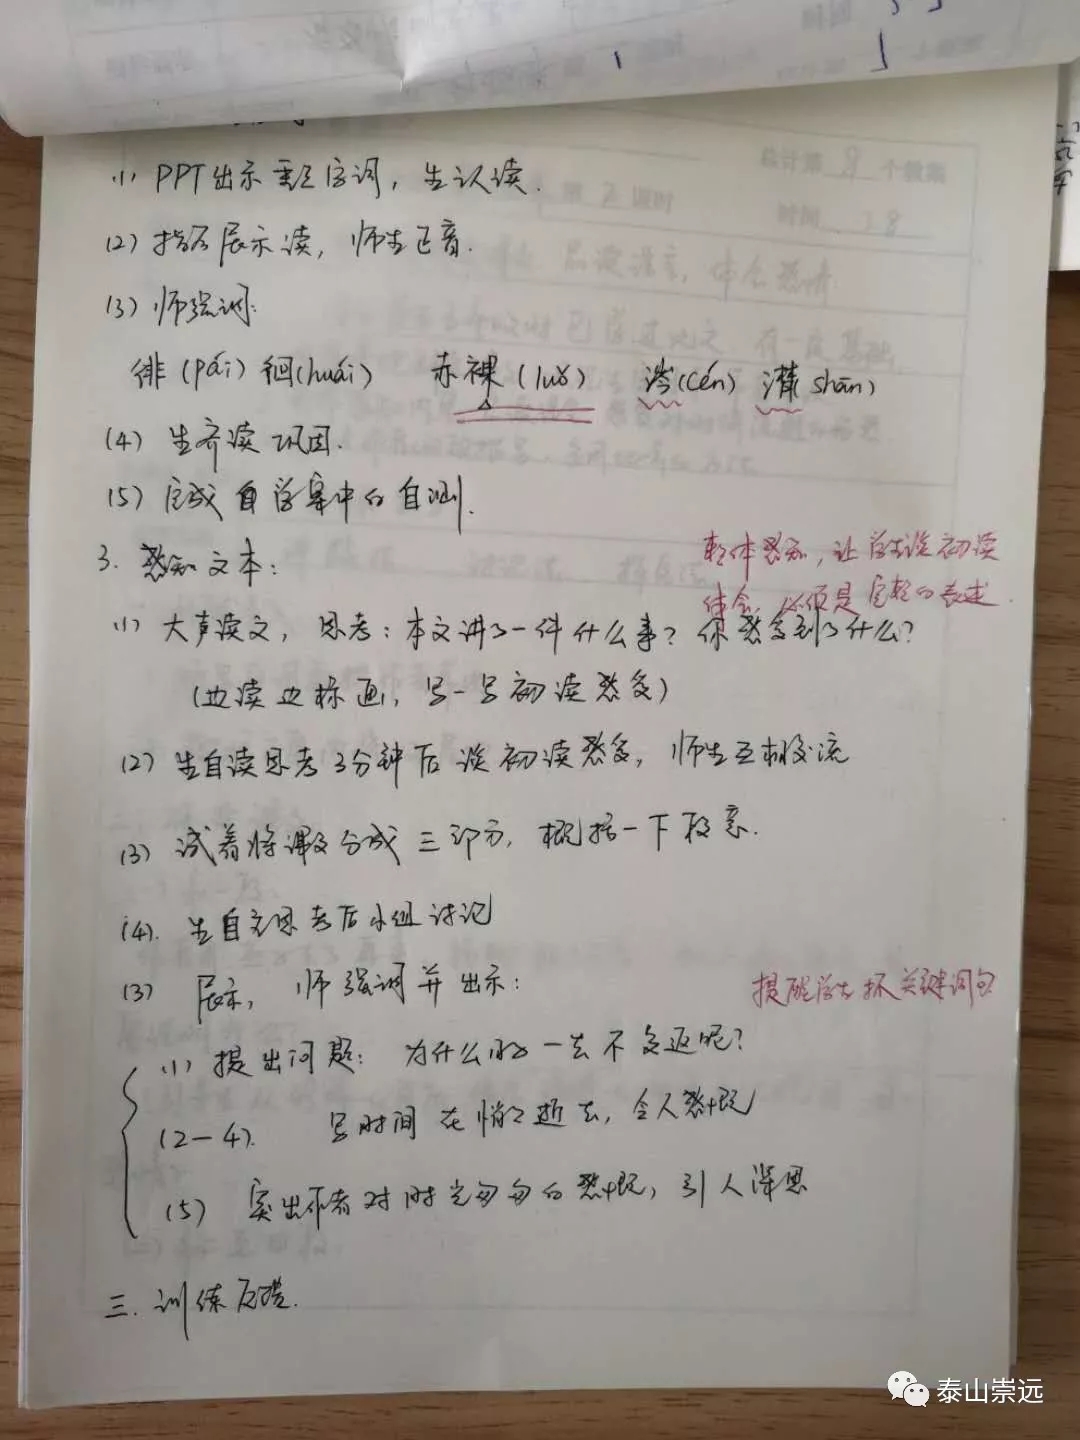 (1) PPT出示重点字词，生认读.
(2) 指名展示读，师生正音.
(3) 师强调:
徘(pái)徊(huái) 赤裸(luǒ) 涔(cén) 潸(shān)
(4) 生齐读巩固.
(5) 完成自学案中的自测.
3. 感知文本:
整体感知，让学生谈初读
体会，必须是完整的表述.
(1) 大声读文，思考：本文讲了一件什么事？你感受到了什么？
(边读边标画，写一写初读感受)
(2) 生自读思考3分钟后谈初读感受，师生互相交流
(3) 试着将课文分成三部分，概括一下段意.
(4). 生自主思考后小组讨论
(3) 展示，师强调并出示:
提醒学生抓关键词句
(1) 提出问题：为什么时一去不复返呢？
(2—4). 写时间在悄悄逝去，令人感慨
(5) 突出作者对时光匆匆的感慨，引人深思
三. 训练反馈.
泰山崇远